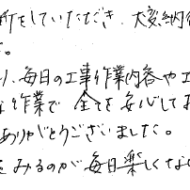 断をしていただき、大変納得
た。
り、毎日の工事作業内容や工
な作業で全てを安心してお
ありがとうございました。
をみるのが毎日楽しくな